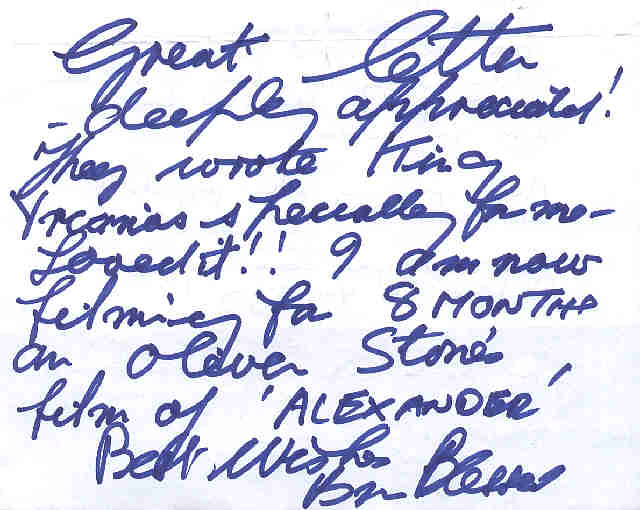 Great letter
- deeply appreciated!
They wrote King
Yrcanos specially for me -
Loved it!! I am now
filming for 8 MONTHS
on Oliver Stone's
film of 'ALEXANDER'
Best Wishes
Brian Blessed